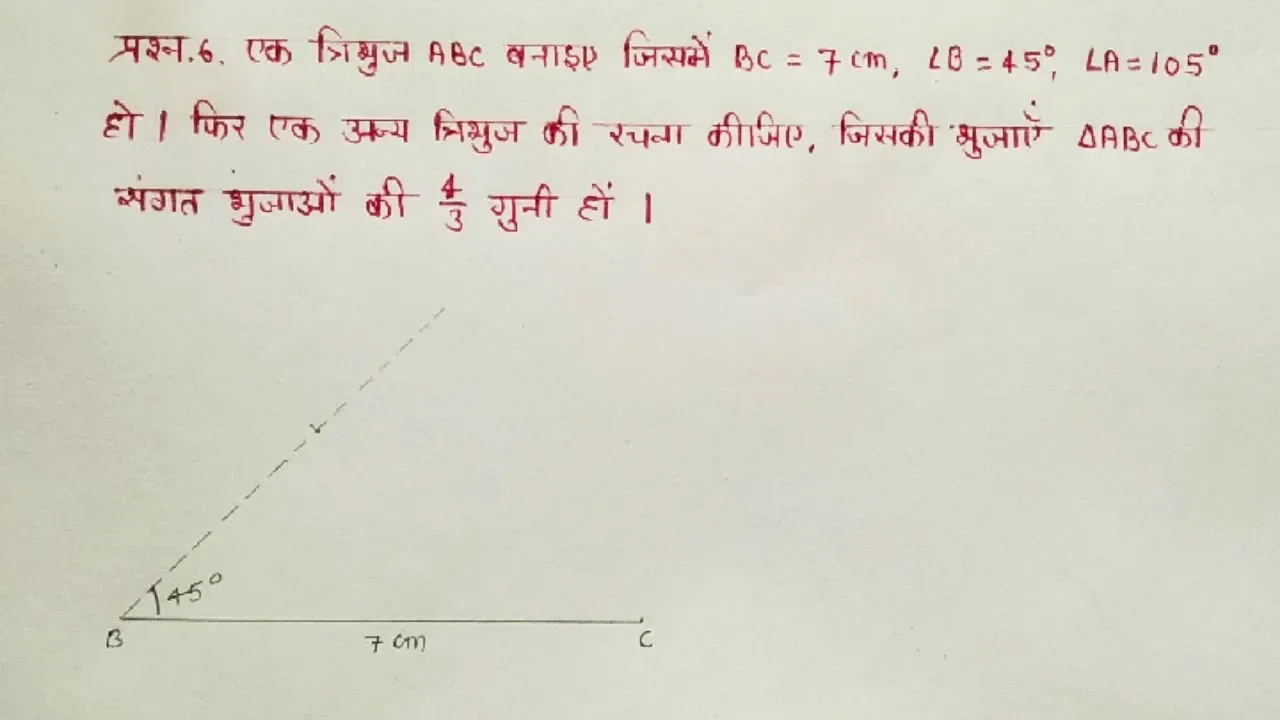 प्रश्न.6. एक त्रिभुज ABC बनाइए जिसमें BC = 7 cm, ∠B = 45°, ∠A = 105°
हो । फिर एक अन्य त्रिभुज की रचना कीजिए, जिसकी भुजाएँ ΔABC की
संगत भुजाओं की 4/3 गुनी हों ।
45°
B 7 cm C